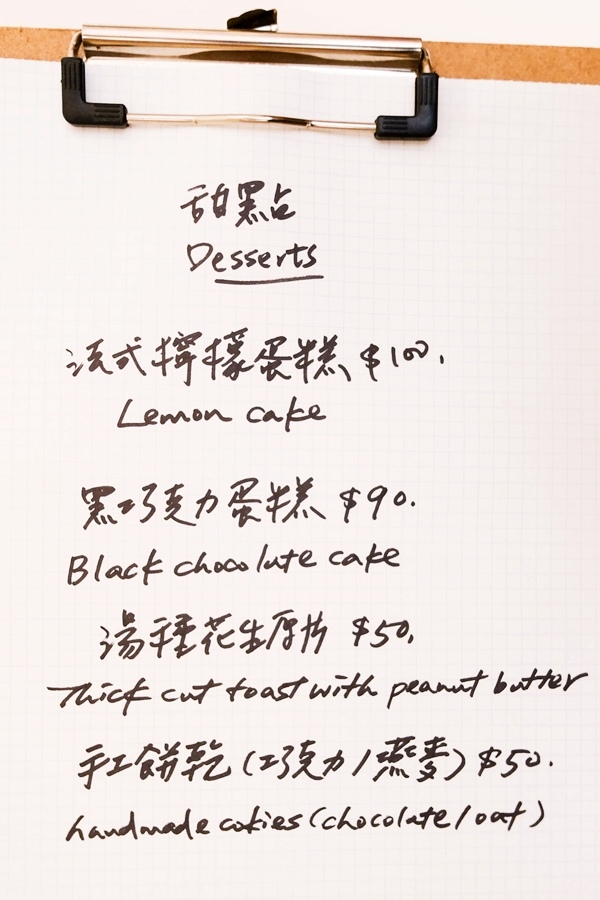 甜點
Desserts
法式檸檬蛋糕 $100.
Lemon cake
黑巧克力蛋糕 $90.
Black chocolate cake
湯種花生厚片 $50.
Thick cut toast with peanut butter
手工餅乾 (巧克力/燕麥) $50.
handmade cokies (chocolate/oat)